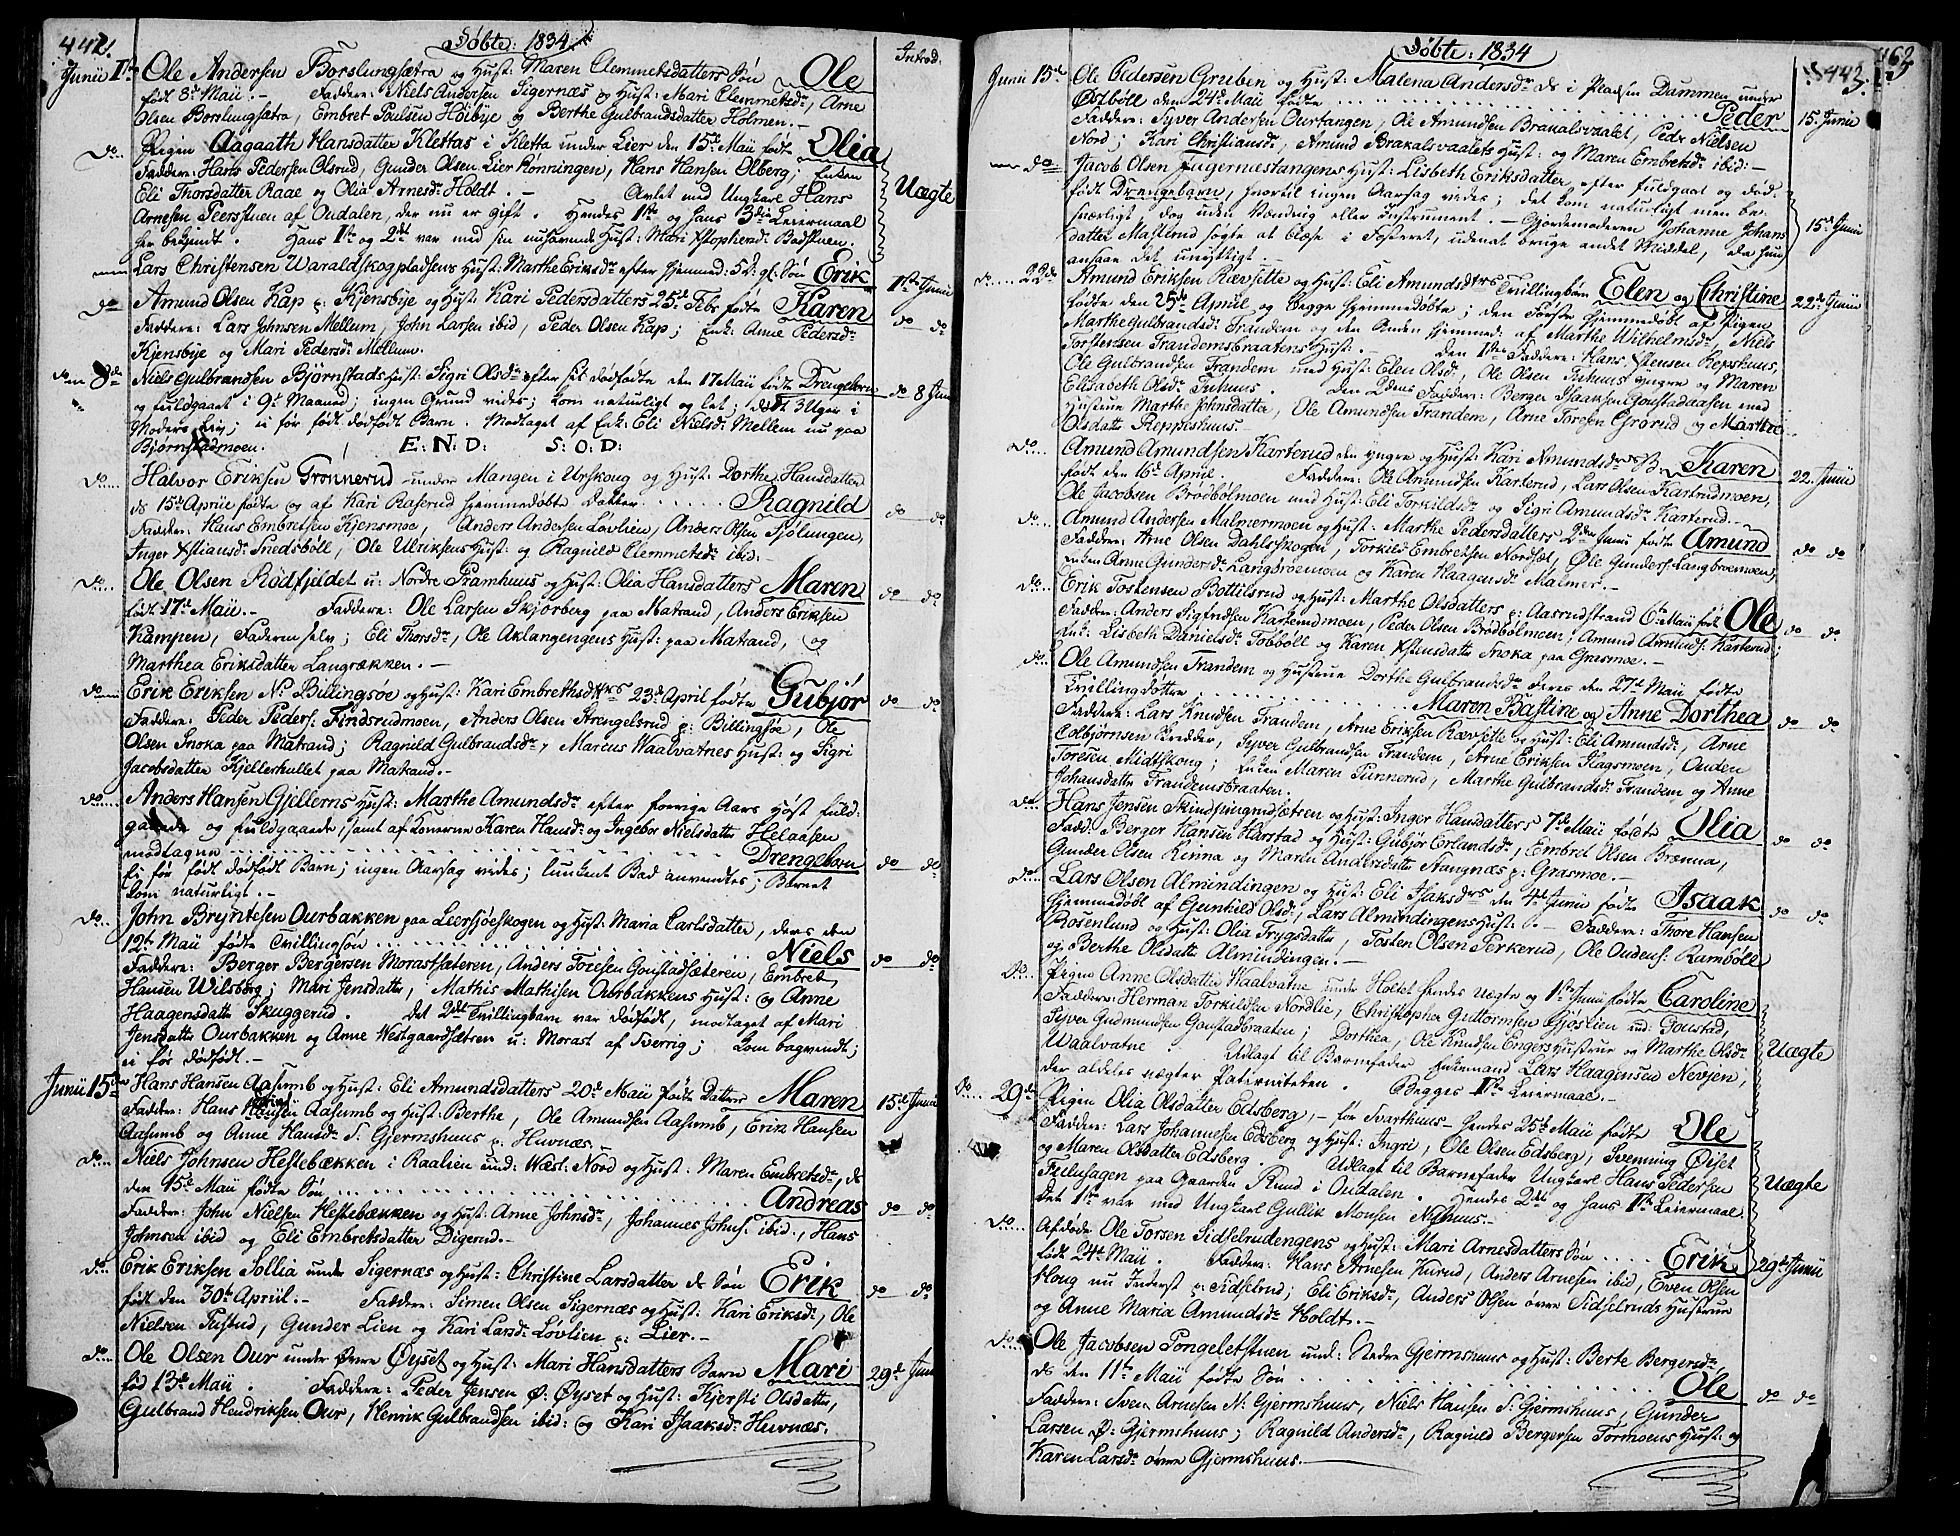 442.
Døbte: 1834.
Introd.
Junii 1ste Ole Andersen Borslungsætra og Hust: Maren Clemmetsdatters Søn Ole
født 8de Maii.- Faddere: Niels Andersen Sigernæs og Hust: Mari Clemmetsdr, Arne
Olsen Borslungsætra, Embret Poulsen Höibye og Berthe Gulbrandsdatter Holmen.-
do... Pigen Aagaath Hansdatter Klettas i Kletta under Lier den 15de Maii født Olia
Faddere: Hans Pedersen Olsrud, Gunder Olsen Lier Rønningen, Hans Hansen Olberg; Enken
Eli Thorsdatter Raae og Olia Arnesdr Holdt.- Avlet med Ungkarl Hans Uægte
Arnesen Peerstuen af Oudalen, der nu er gift. Hendes 1ste og hans 3die Leiermaal
her bekjendt. Hans 1ste og 2det var med sin nuværende Hust: Mari Xstophersdr Badstuen.
Lars Christensen Waraldskogpladsens Hust: Marthe Eriksdr efter hjemmed: 5 d: gl. Søn Erik 1ste Junii
do Amund Olsen Kap p: Kjensbye og Hust: Kari Pedersdatters 25de Febr. fødte Karen do do
Faddere: Lars Johnsen Mellum, John Larsen ibid, Peder Olsen Kap; Enk: Anne Pedersdr
Kjensbye og Mari Pedersdr Mellum.
do 8de Niels Gulbrandsen Bjørnstads Hust: Sigri Olsdr efter sit dødfødte den 17 Maii fødte Drengebarn do 8 Juni
og fuldgaaet i 9de Maaned; ingen Grund vides; kom naturligt og let; død 3 Uger i
Moders Liv; ei før født dødfødt Barn. Modtaget af Enk: Eli Nielsdr Mellem nu paa
Bjørnstadmoen. E:N:D: S:O:D:
do... Halvor Eriksen Grønnerud under Mangen i Urskoug og Hust: Dorthe Hansdatter
ds 15de Aprile fødte og af Kari Raserud hjemmedøbte Datter . . . . . Ragnild do do
Faddere: Hans Embretsen Kjensmoe, Anders Andersen Lövlien, Anders Olsen Sjölungen,
Inger Xstiansdr Snedsböll, Ole Ulriksens Hust: og Ragnild Clemmetsdr ibid:-
do... Ole Olsen Rödfjeldet u: Nordre Framhuus og Hust: Olia Hansdatters Maren do do
født 17de Maii.- Faddere: Ole Larsen Skjørberg paa Matrand, Anders Eriksen
Kampen, Faderen selv; Eli Thorsdr, Ole Aklangengens Hust: paa Matrand, og
Marthea Eriksdatter Langrækken.-
do Erik Eriksen N: Billingsøe og Hust: Kari Embrethsdtrs 23de April fødte Gubjør do do
Faddere: Peder Peders: Findsrudmoen, Anders Olsen Strengelsrud p: Billingsøe, Ole
Olsen Snoka paa Matrand; Ragnild Gulbrandsdr, Marcus Waalvatnes Hust: og Sigri
Jacobsdatter Kjellerhullet paa Matrand.-
do... Anders Hansen Gjillerns Hust: Marthe Amundsdr efter forrige Aars Høst fuld-
gaaede og fuldgaaede, samt af Konerne Karen Hansdr og Ingebor Nielsdatter Helaasen
modtagne . . . . . Drengebarn do do
Ei før født dødfødt Barn; ingen Aarsag vides; lunkent Bad anvendtes; Barnet
kom naturligt.-
do. John Bryntesen Ourbakken paa Leersjøeskogen og Hust: Maria Carlsdatter, deres den
12te Maii fødte Tvillingsøn . . . . . Niels do do
Faddere: Berger Bergersen Morastsæteren, Anders Toresen Goustadsæteren, Embret
Hansen Wilsberg; Mari Jensdatter, Mathis Mathisen Ourbakkens Hust: og Anne
Haagensdatter Skuggerud. Det 2det Tvillingbarn var dødfødt, modtaget af Mari
Jensdatter Ourbakken og Anne Westgaardsætren u: Morast af Sverrig; kom bagvendt;
ei før dødfødt.-
Junii 15de Hans Hansen Aasumb og Hust: Eli Amundsdatters 20de Maii fødte Datter Maren 15de Junii
Faddere: Hans Hansen Aasumb og Hust: Berthe, Ole Amundsen Aasumb, Erik Hansen
Aasumb og Anne Hansdr S: Gjermshuus p: Huvnæs.-
do... Niels Johnsen Hestebækken i Raalien und: Wæst: Nord og Hust: Maren Embretsdr, ds
den 15de Maii fødte Søn . . . . . Andreas do do
Faddere: John Nielsen Hestebækken og Hust: Anne Johnsdr, Johannes Johns: ibid., Hans
Johnsen ibid og Eli Embretsdatter Digerud.-
do... Erik Eriksen Sollia under Sigernæs og Hust: Christine Larsdatter ds Søn Erik do do
født den 30te Apriil.- Faddere: Simen Olsen Sigernæs og Hust: Kari Eriksdr, Ole
Nielsen Pustud, Gunder Lien og Kari Larsdr Lövlien p: Lier.-
do... Ole Olsen Our under Övre Öyset og Hust: Mari Hansdatters Barn Mari 29de Juni
fød 13de Maii. Faddere: Peder Jensen Ø: Öyset og Hust: Kjersti Olsdatter,
Gulbrand Hendriksen Our, Henrik Gulbrandsen ibid: og Kari Isaaksdr Huvnæs.
Døbte: 1834
443.
Junii 15de Ole Pedersen Gruben og Hust: Malena Andersdr ds i Pladsen Dammen under
Østböll den 24de Maii fødte . . . . . Peder 15. Junii
Faddere: Syver Andersen Ourtangen, Ole Amundsen Brakalsvaalet, Peder Nielsen
Nord; Kari Christiansdr, Amund Brakalsvaalets Hust: og Maren Embretsdr ibid:-
do Jacob Olsen Jugernestangens Hust: Lisbeth Eriksdatter efter fuldgaaet og død-
født Drengebarn, hvortil ingen Aarsag vides; det kom naturligt men be-
sværligt, dog uden Vending eller Instrument.- Gjordemoderen Johanne Johans- 15de Junii
datter Masterud søgte at blæse i Fosteret, udenat bruge andet Middel, da hun
ansaae det unyttigt.-
do.....22de Amund Eriksen Rævsitte og Hust: Eli Amundsdtrs Tvillingbørn Elen og Christine 22de Junii
fødte den 25de Apriil og begge hjemmedøbte; den Første hjemmedøbt af Pigen
Marthe Gulbrandsdr Trandem og den Anden hjemmed. af Marthe Wilhelmsdr, Niels
Torstensen Trandemsbraatens Hust:.- Den 1stes Faddere: Hans Xstensen Repshuus,
Ole Gulbrandsen Trandem med Hust: Elen Olsdr, Ole Olsen Tuhuus yngre og Maren
Elisabeth Olsdr Tuhuus. Den 2dens Faddere: Berger Isaaksen Goustadaasen med
Hustrue Marthe Johnsdatter, Ole Amundsen Trandem, Arne Toresen Grörud og Marthe
Olsdatter Reppeshuus.-
do.... Amund Amundsen Karterud den yngre og Hust: Kari Amundsdrs B. Karen 22. Junii
født den 16de April. Faddere: Ole Amundsen Karterud, Lars Olsen Karterudmoen,
Ole Jacobsen Brödbölmoen med Hust: Eli Torkildsdr og Sigri Amundsdr Karterud.-
do... Amund Andersen Malmermoen og Hust: Marthe Pedersdatters 2den Junii fødte Amund do do
Faddere: Arne Olsen Dahlsskogen, Torkild Embretsen Nordhol, Ole Gunders: Langbroemoen,
Enken Anne Gundersdr Langbroemoen og Karen Haagensdr Malmer.-
do... Erik Tostensen Bottilsrud og Hust: Marthe Olsdatters p: Aasrudstrand 6te Maii født Ole do do
Faddere: Anders Sigfridsen Karterudmoen, Peder Olsen Brödbölmoen, Amund Amunds: Karterud;
Enk: Lisbeth Danielsdr Tobböll og Karen Xstensdatter Snoka paa Grasmoe.-
do... Ole Amundsen Trandem og Hustrue Dorthe Gulbrandsdr deres den 27de Maii fødte
Tvillingdöttre . . . . . Maren Bastine og Anne Dorthea do do
Faddere: Lars Knudsen Trandem, Arne Eriksen Rævsitte og Hust: Eli Amundsdr, Arne
Colbjørnsen Bredder, Syver Gulbrandsen Trandem, Arne Eriksen Hagsmoen, Ouden
Toresen Midtskoug; Enken Maren Tunnerud, Marthe Gulbrandsdr Trandem og Anne
Johansdatter Trandemsbraaten.
do.. Hans Jensen Skindpungrudsætren og Hust: Inger Hansdatters 7de Maii fødte Olia do do
Fadd: Berger Hansen Harstad og Hust: Gubjør Erlandsdr, Embret Olsen Brænna,
Gunder Olsen Rinna og Maren Andersdatter Stangnæs p: Grasmoe.-
do.... Lars Olsen Almindingen og Hust: Eli Isaksdrs den 4de Junii fødte Isaak do do
hjemmedøbt af Gunhild Olsdr, Lars Almindingens Hust:.- Faddere: Thore Hansen
Rosenlund og Hust: Olia Trygsdatter, Tosten Olsen Terkerud, Ole Oudens: Ramböll
og Berthe Olsdatter Almindingen.-
do... Pigen Anne Olsdatter Waalvatne under Holtet hendes Uægte og 1ste Junii fødte Caroline
Faddere: Herman Torkildsen Nordlie, Christopher Guttormsen Gjöslien und: Goustad,
Syver Gudmundsen Goustadbraaten; Dorthea, Ole Knudsen Engers Hustrue og Marthe Olsdr
Waalvatne. Udlagt til Barnefader Enkemand Lars Haagensen Nevjen, Uægte
der aldeles nægter Paterniteten. Begges 1ste Leiermaal.-
do.... 29de Pigen Olia Olsdatter Edsberg,- for Svarthuus- hendes 25de Maii fødte Ole
Faddere: Lars Johannesen Edsberg og Hust: Ingri, Ole Olsen Edsberg, Svenning Öiset
og Maren Olsdatter Edsberg. Udlagt til Barnefader Ungkarl Hans Pedersen
Fulusagen paa Gaarden Ruud i Oudalen. Hendes 2det og hans 1ste Leiermaal. Uægte
Det 1ste var med Ungkarl Gullik Monsen Nyhuus.-
do... Afdøde Ole Torsen Sidselrudengens og Hust: Mari Arnesdatters Søn . . . . Erik 29de Junii
født 24de Maii. Faddere: Hans Arnesen Kurud, Anders Arnesen ibid, Even Olsen
Houg nu Inderst p: Sidselrud; Eli Eriksdr, Anders Olsen övre Sidselruds Hustrue
og Anne Maria Amundsdr Holdt.-
do.... Ole Jacobsen Pongeletstuen und: Nedre Gjermshuus og Hust: Berte Bergersdr
ds den 11te Maii fødte Søn . . . . . Ole do do
Faddere: Sven Arnesen N: Gjermshuus, Niels Hansen S: Gjermshuus, Gunder
Larsen Ø: Gjermshuus; Ragnild Andersdr, Ragnild Bergersen Tormoens Hust: og
Karen Larsdr övre Gjermshuus.-